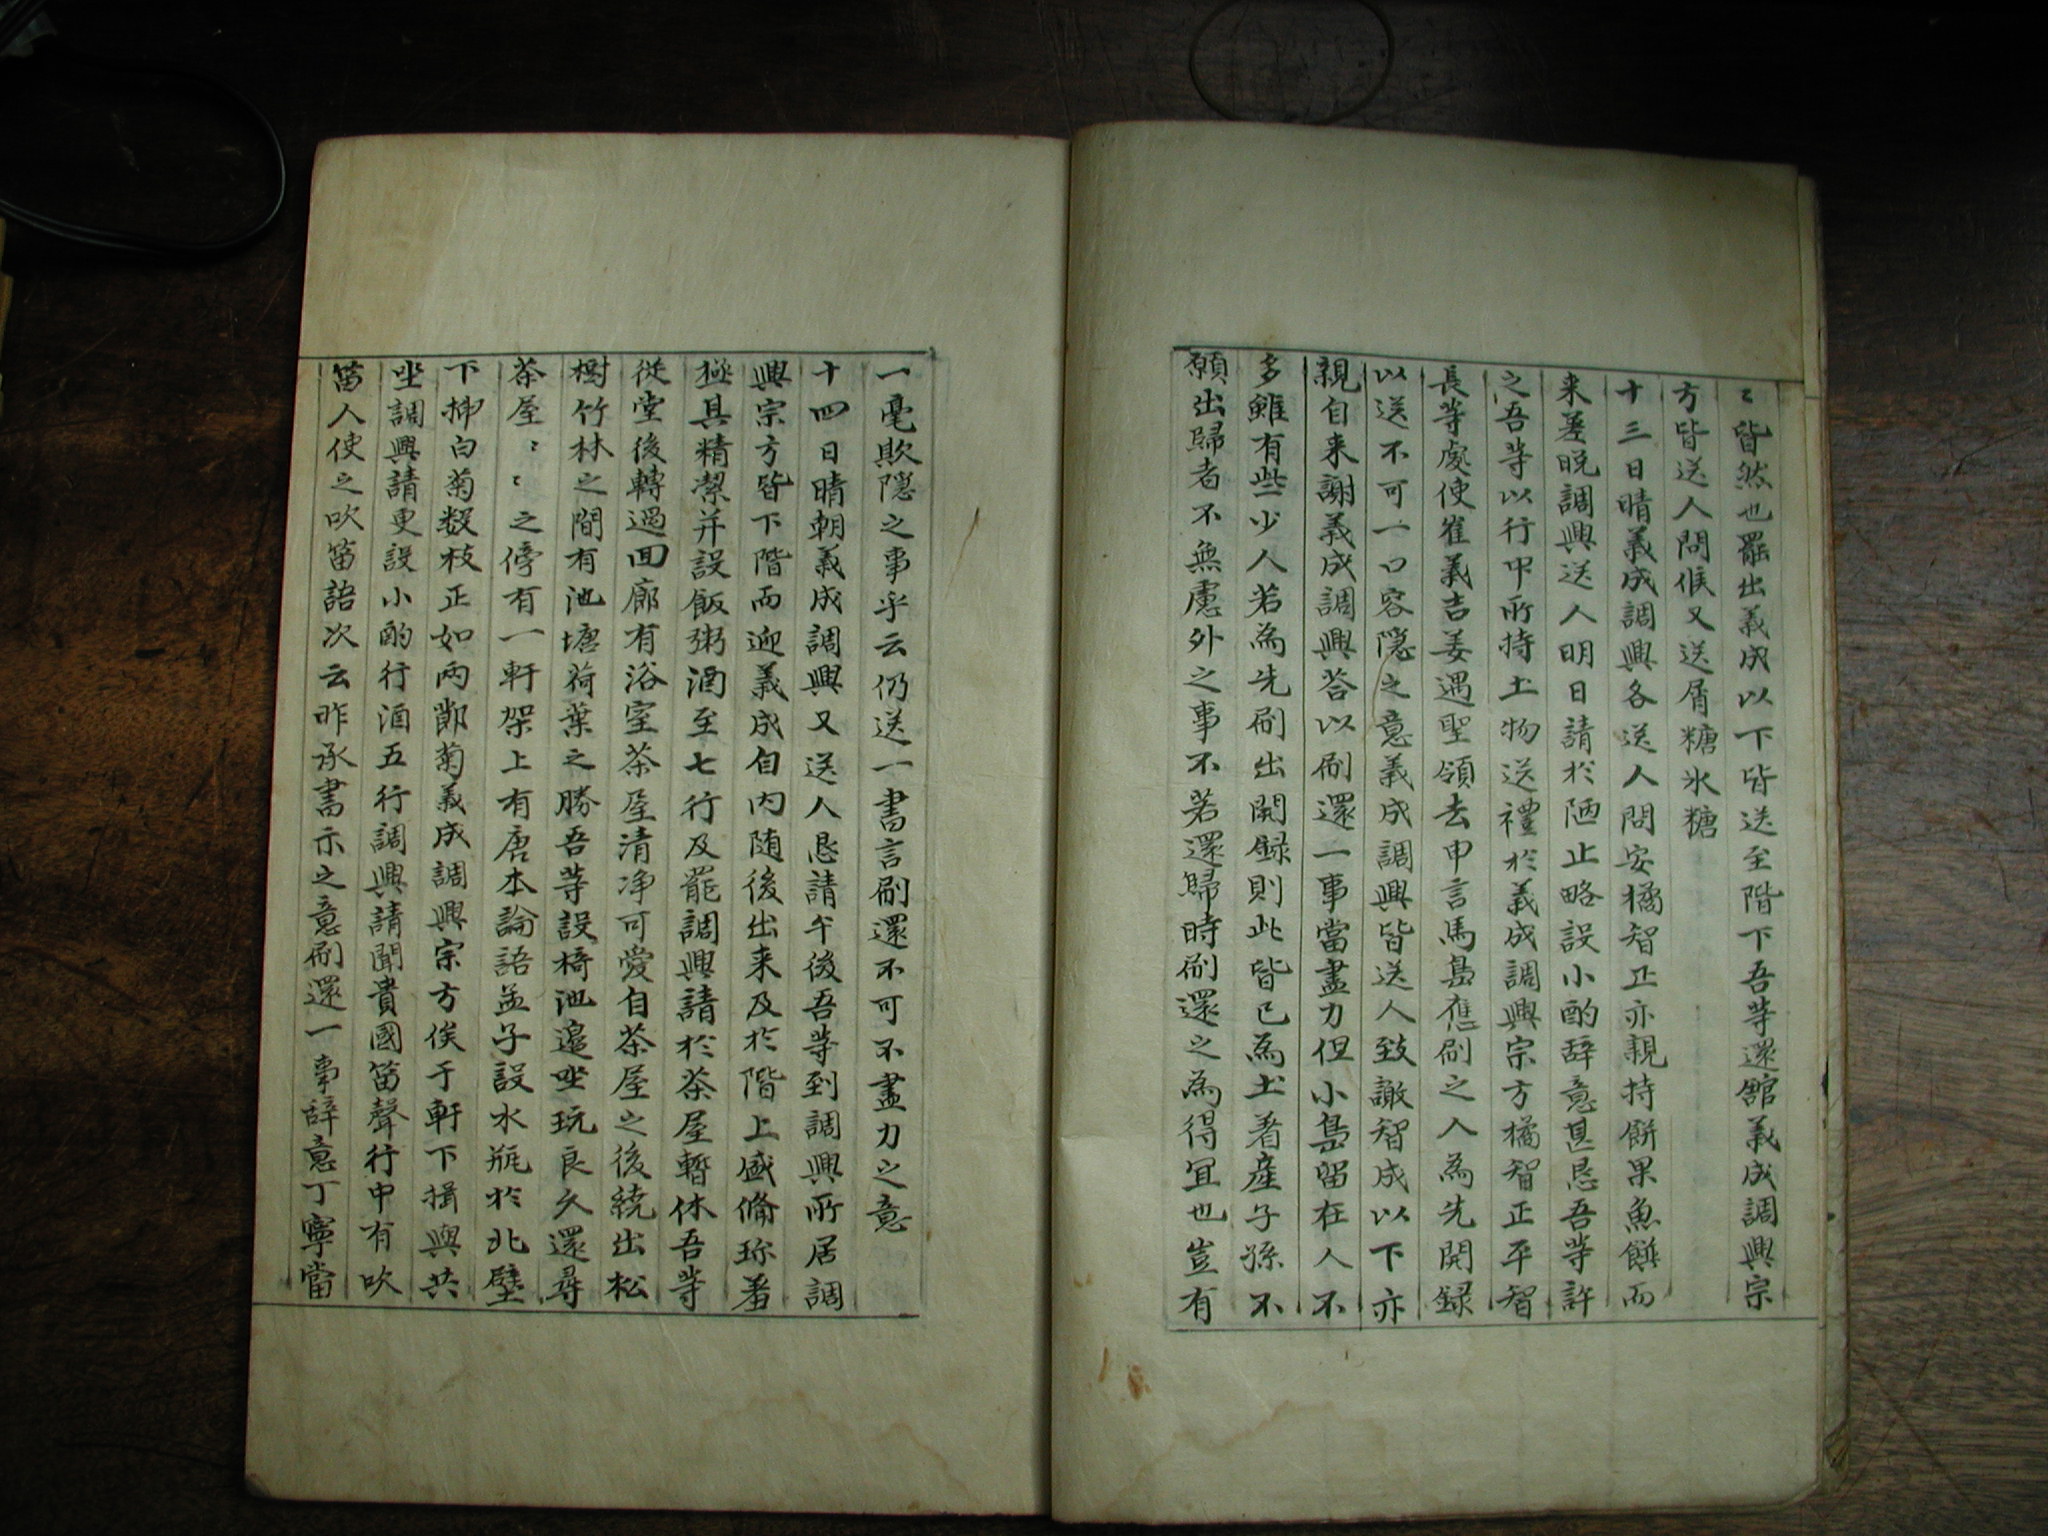 〻皆然也罷出義成以下皆送至階下吾等還館義成調興宗
方皆送人問候又送屑糖氷糖
十三日晴義成調興各送人問安橘智正亦親持餅果魚饌而
来差晚調興送人明日請於陋止略設小酌辞意甚恳吾等許
之吾等以行中所持土物送禮於義成調興宗方橘智正平智
長等處使崔義吉姜遇聖領去申言馬島應刷之人為先開録
以送不可一口容隱之意義成調興皆送人致謝智成以下亦
親自来謝義成調興答以刷還一事當盡力但小島留在人不
多雖有些少人若為先刷出開録則此皆已為土着産子孫不
願出歸者不無慮外之事不若還歸時刷還之為得宜也豈有
一毫欺隱之事乎云仍送一書言刷還不可不盡力之意
十四日晴朝義成調興又送人恳請午後吾等到調興所居調
興宗方皆下階而迎義成自内随後出来及於階上盛俻珎羞
極其精潔并設飯粥酒至七行及罷調興請於茶屋暫休吾等
從堂後轉過回廊有浴室茶屋清净可愛自茶屋之後繞出松
樹竹林之間有池塘荷葉之勝吾等設椅池邉坐玩良久還尋
茶屋〻〻之傍有一軒架上有唐本論語孟子設水瓶於北壁
下揷白菊數枝正如両鄼菊義成調興宗方俟于軒下揖與共
坐調興請更設小酌行酒五行調興請聞貴國笛聲行中有吹
笛人使之吹笛語次云昨承書示之意刷還一事辞意丁寧當